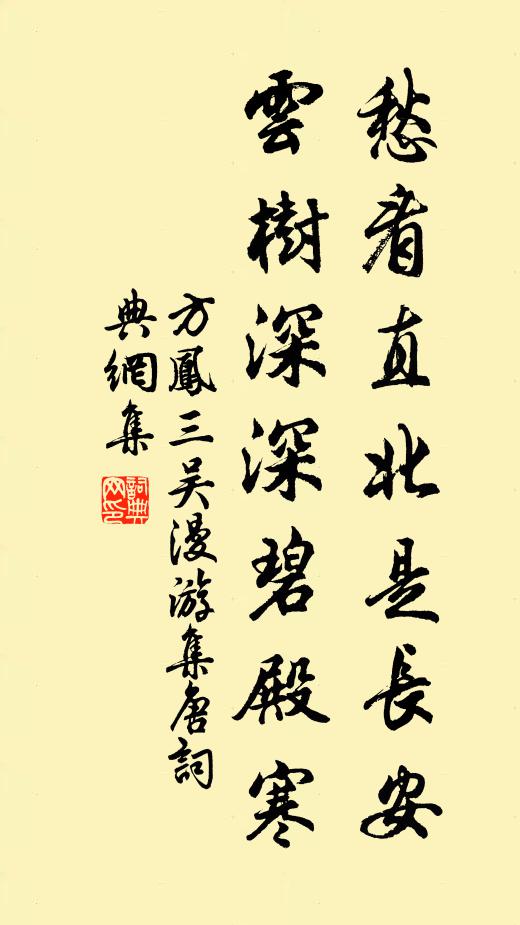 愁看直北是長安
雲樹深深碧殿寒
方鳳三吴漫游集唐詞
典網集
詞典网印